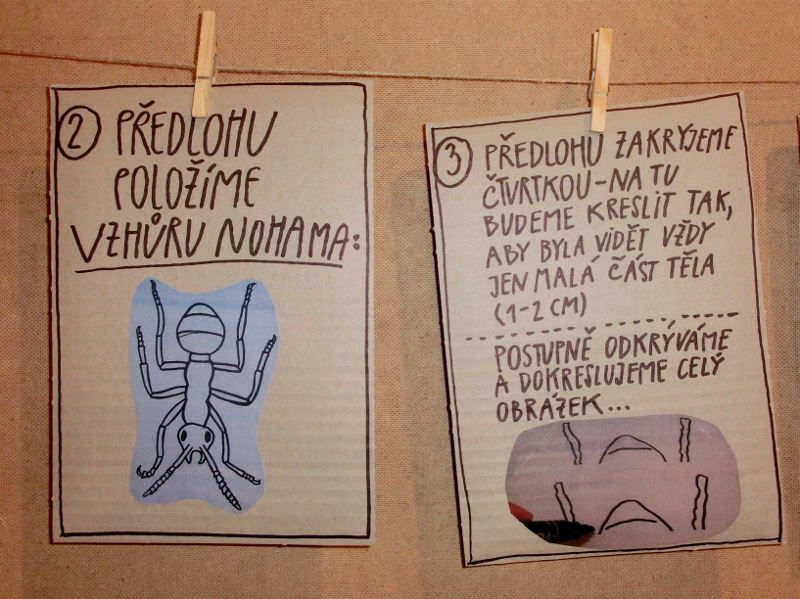 ② PŘEDLOHU
POLOŽÍME
VZHŮRU NOHAMA:
③ PŘEDLOHU ZAKRYJEME
ČTVRTKOU-NA TU
BUDEME KRESLIT TAK,
ABY BYLA VIDĚT VŽDY
JEN MALÁ ČÁST TĚLA
(1-2 CM)
POSTUPNĚ ODKRÝVÁME
A DOKRESLUJEME CELÝ
OBRÁZEK...